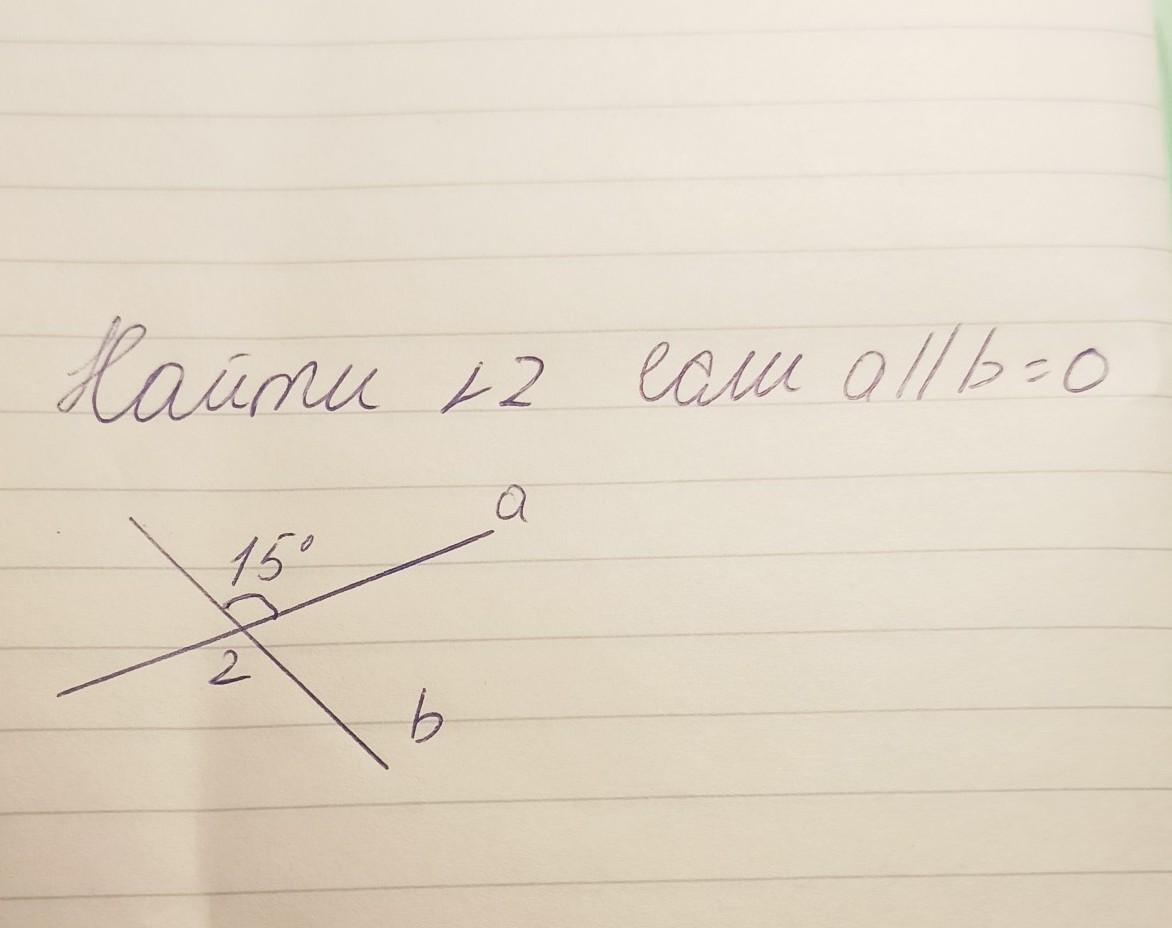 Найти ∠2 если a // b = 0
a
15°
2
b